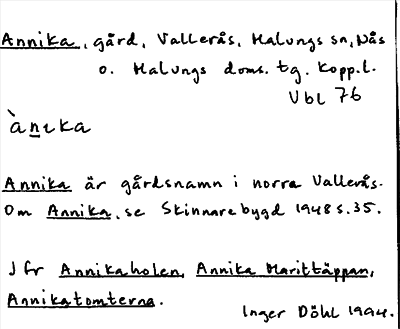 Annika, gård, Vallerås, Malungs sn, Nås
o. Malungs doms. tg. Kopp.l.
Vbl 76
ànıka
Annika är gårdsnamn i norra Vallerås.
Om Annika, se Skinnarebygd 1948 s.35.
Jfr Annikaholen, Annika Marittäppan,
Annikatomterna.
Inger Döhl 1994.